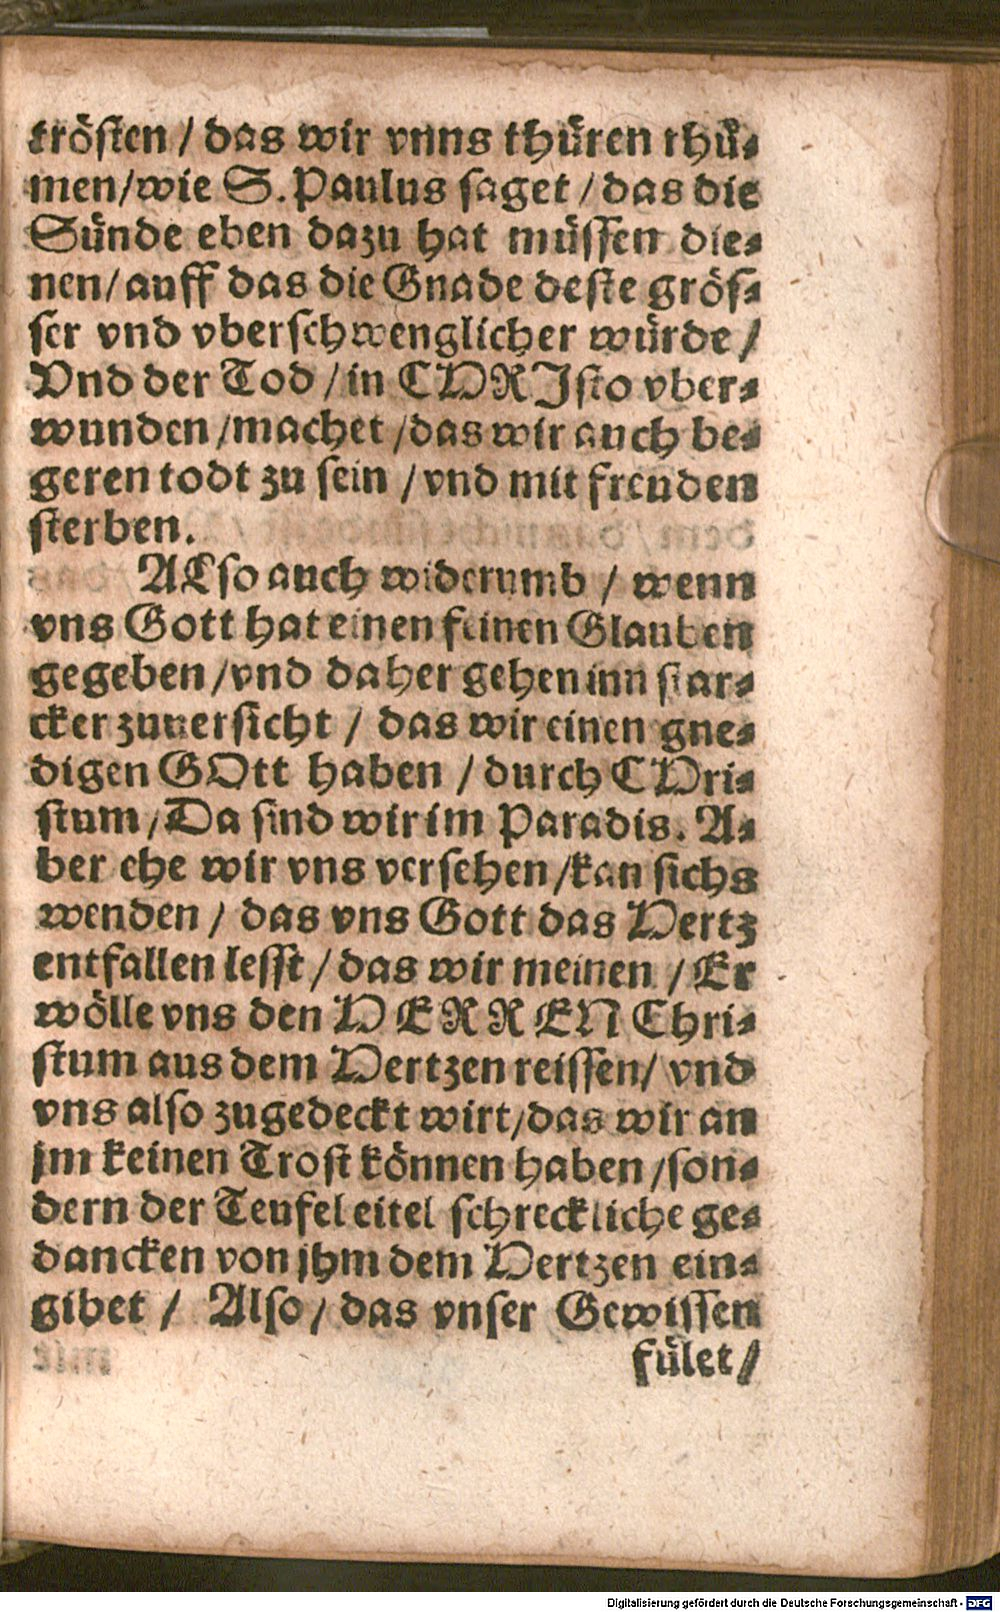 trösten / das wir vnns thüren rhü⸗
men/wie S. Paulus saget / das die
Sünde eben dazu hat müssen die⸗
nen/ auff das die Gnade deste grös⸗
ser vnd vberschwenglicher würde /
Vnd der Tod / in CHRJsto vber⸗
wunden /machet /das wir auch be⸗
geren todt zu sein / vnd mit freuden
sterben.
ALso auch widerumb / wenn
vns Gott hat einen feinen Glauben
gegeben /vnd daher gehen inn star⸗
cker zuuersicht / das wir einen gne⸗
digen GOtt haben / durch CHri⸗
stum /Da sind wir im Paradis. A⸗
ber ehe wir vns versehen /kan sichs
wenden / das vns Gott das Hertz
entfallen lesst / das wir meinen / Er
wölle vns den HERREN Chri⸗
stum aus dem Hertzen reissen/ vnd
vns also zugedeckt wirt/das wir an
jm keinen Trost können haben /son⸗
dern der Teufel eitel schreckliche ge⸗
dancken von jhm dem Hertzen ein⸗
gibet / Also / das vnser Gewissen
fület/
Digitalisierung gefördert durch die Deutsche Forschungsgemeinschaft - DFG